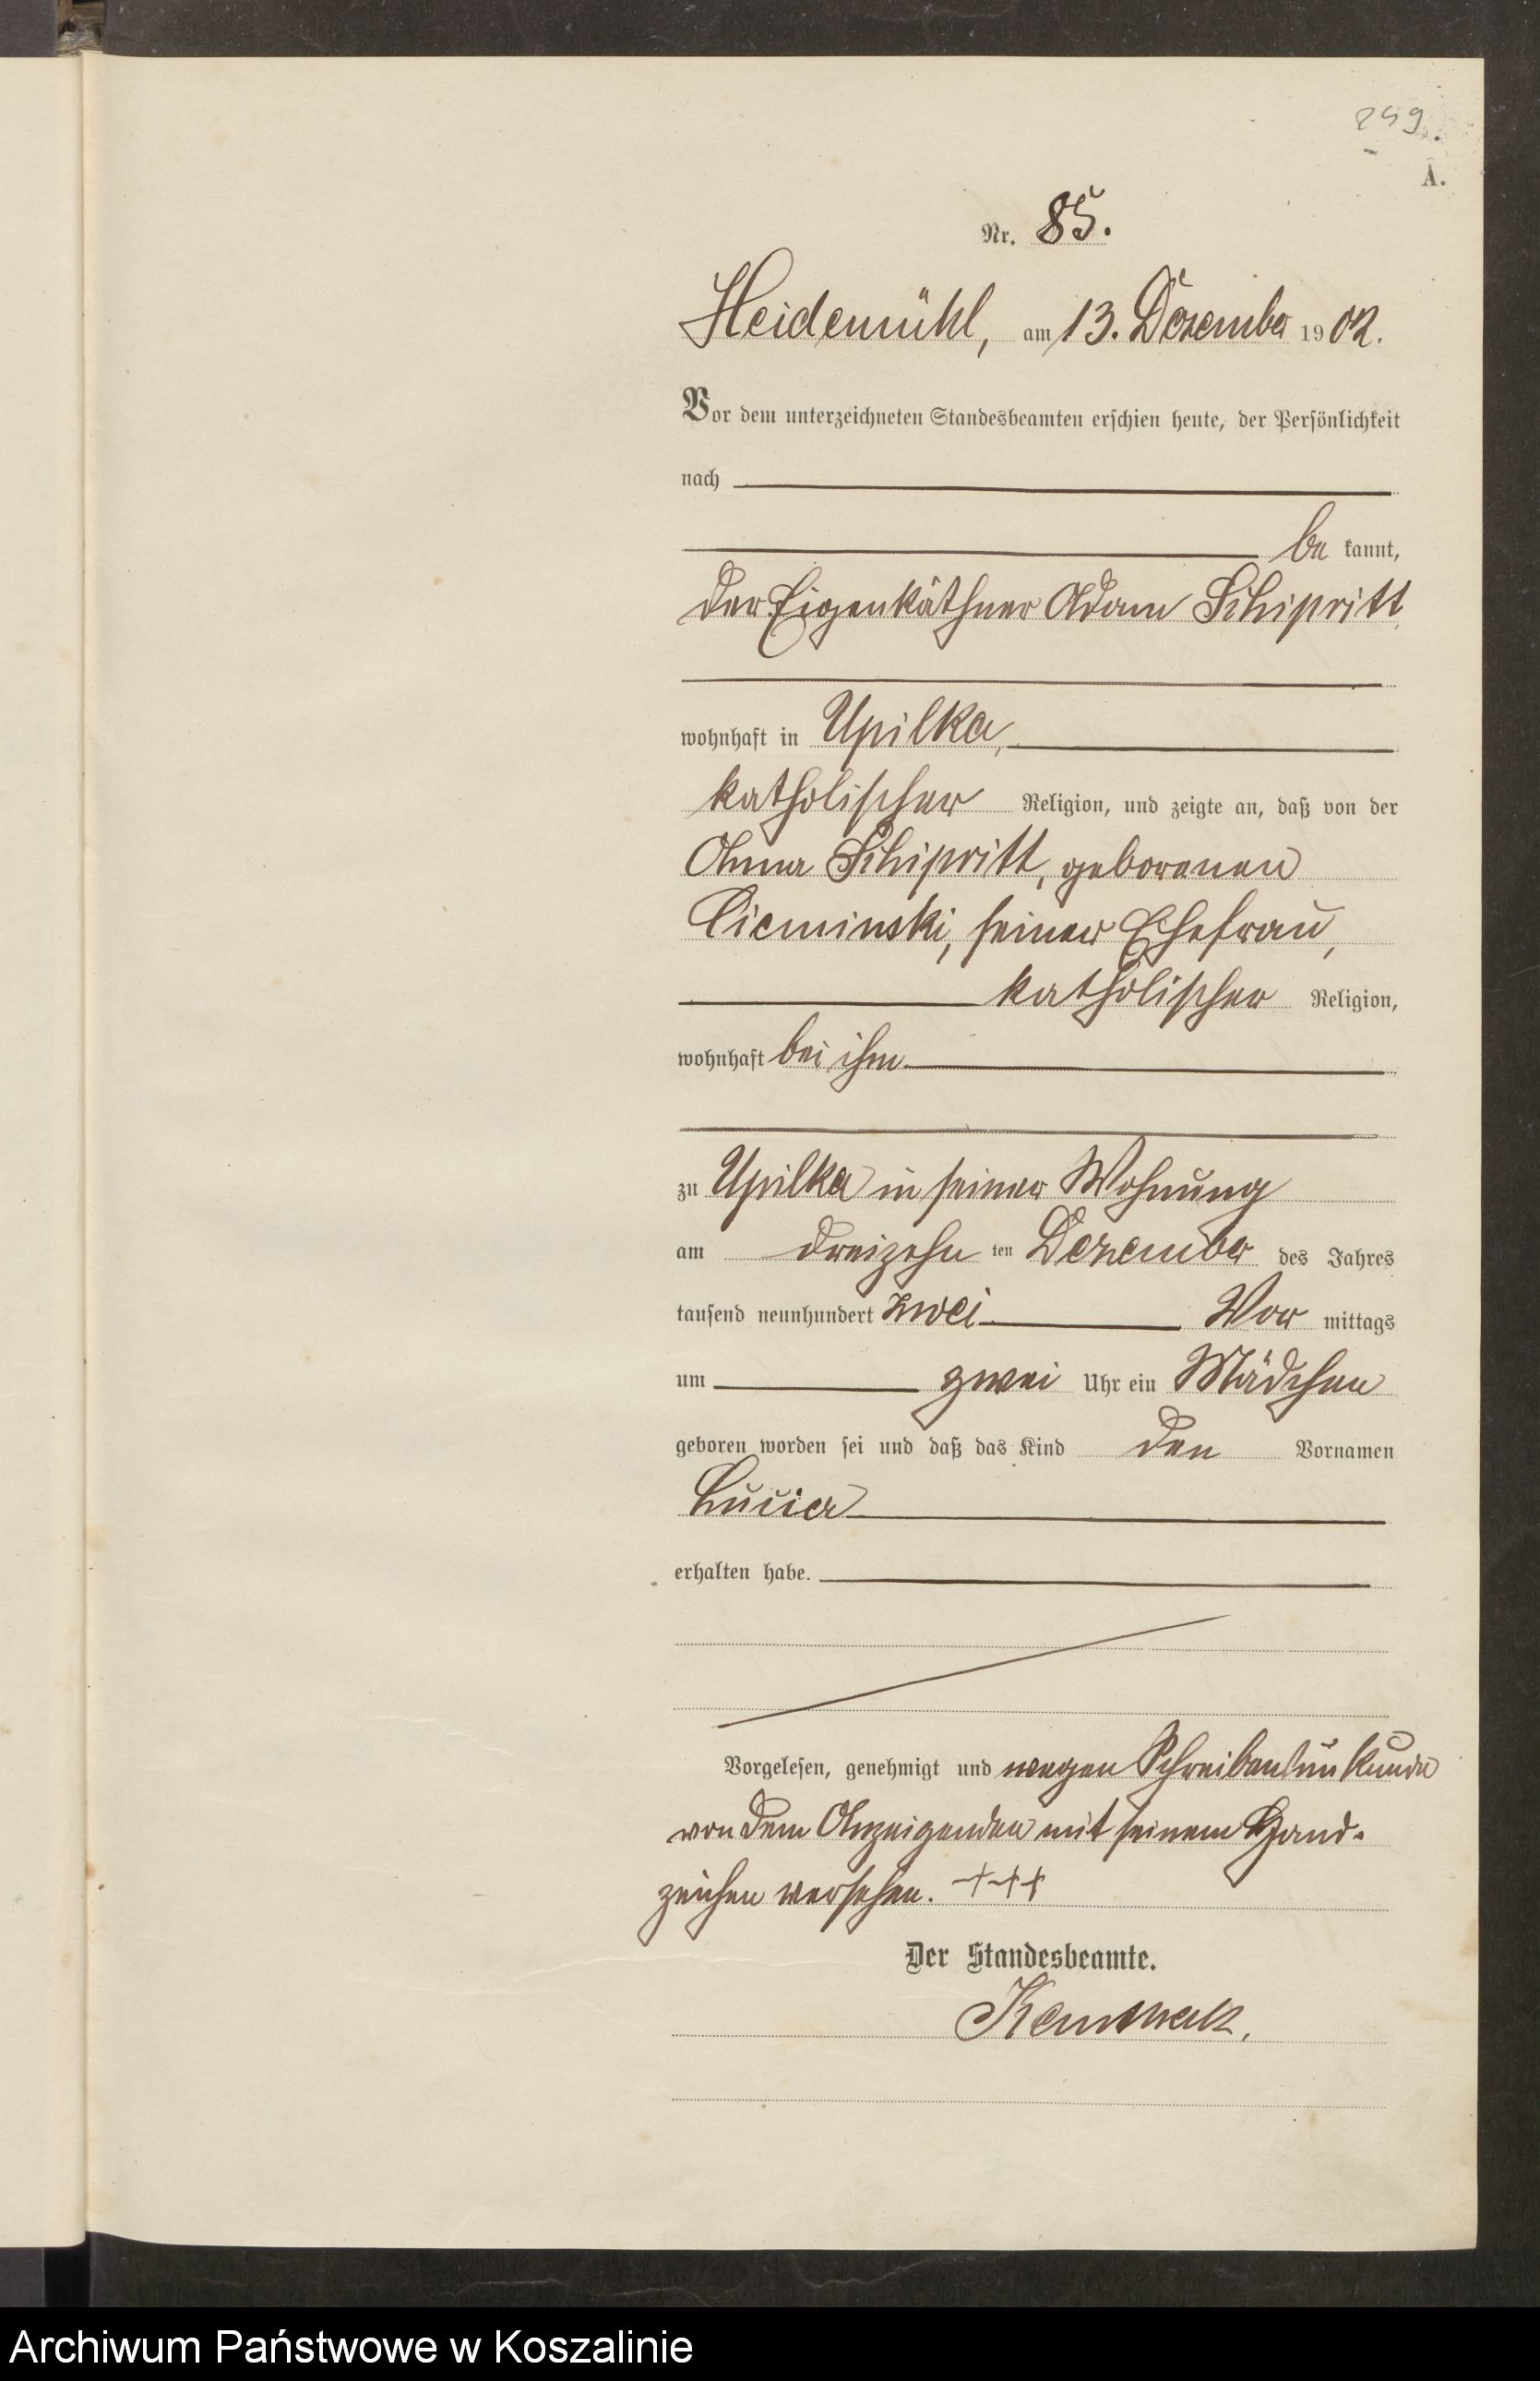 259.
A.
Nr. 85.
Heidemühl, am 13. Dezember 1902.
Vor dem unterzeichneten Standesbeamten erschien heute, der Persönlichkeit
nach
be kannt,
der Eigenkäthner Adam Schipritt,
wohnhaft in Upilka,
katholischer Religion, und zeigte an, daß von der
Anna Schipritt, geborenen
Cieminski, seiner Ehefrau,
katholischer Religion,
wohnhaft bei ihm
zu Upilka in seiner Wohnung
am dreizehn ten Dezember des Jahres
tausend neunhundert zwei Vor mittags
um zwei Uhr ein Mädchen
geboren worden sei und daß das Kind den Vornamen
Lucia
erhalten habe.
Vorgelesen, genehmigt und wegen Schreibensunkunde
von dem Anzeigenden mit seinem Hand-
zeichen versehen. +++
Der Standesbeamte.
Archiwum Państwowe w Koszalinie